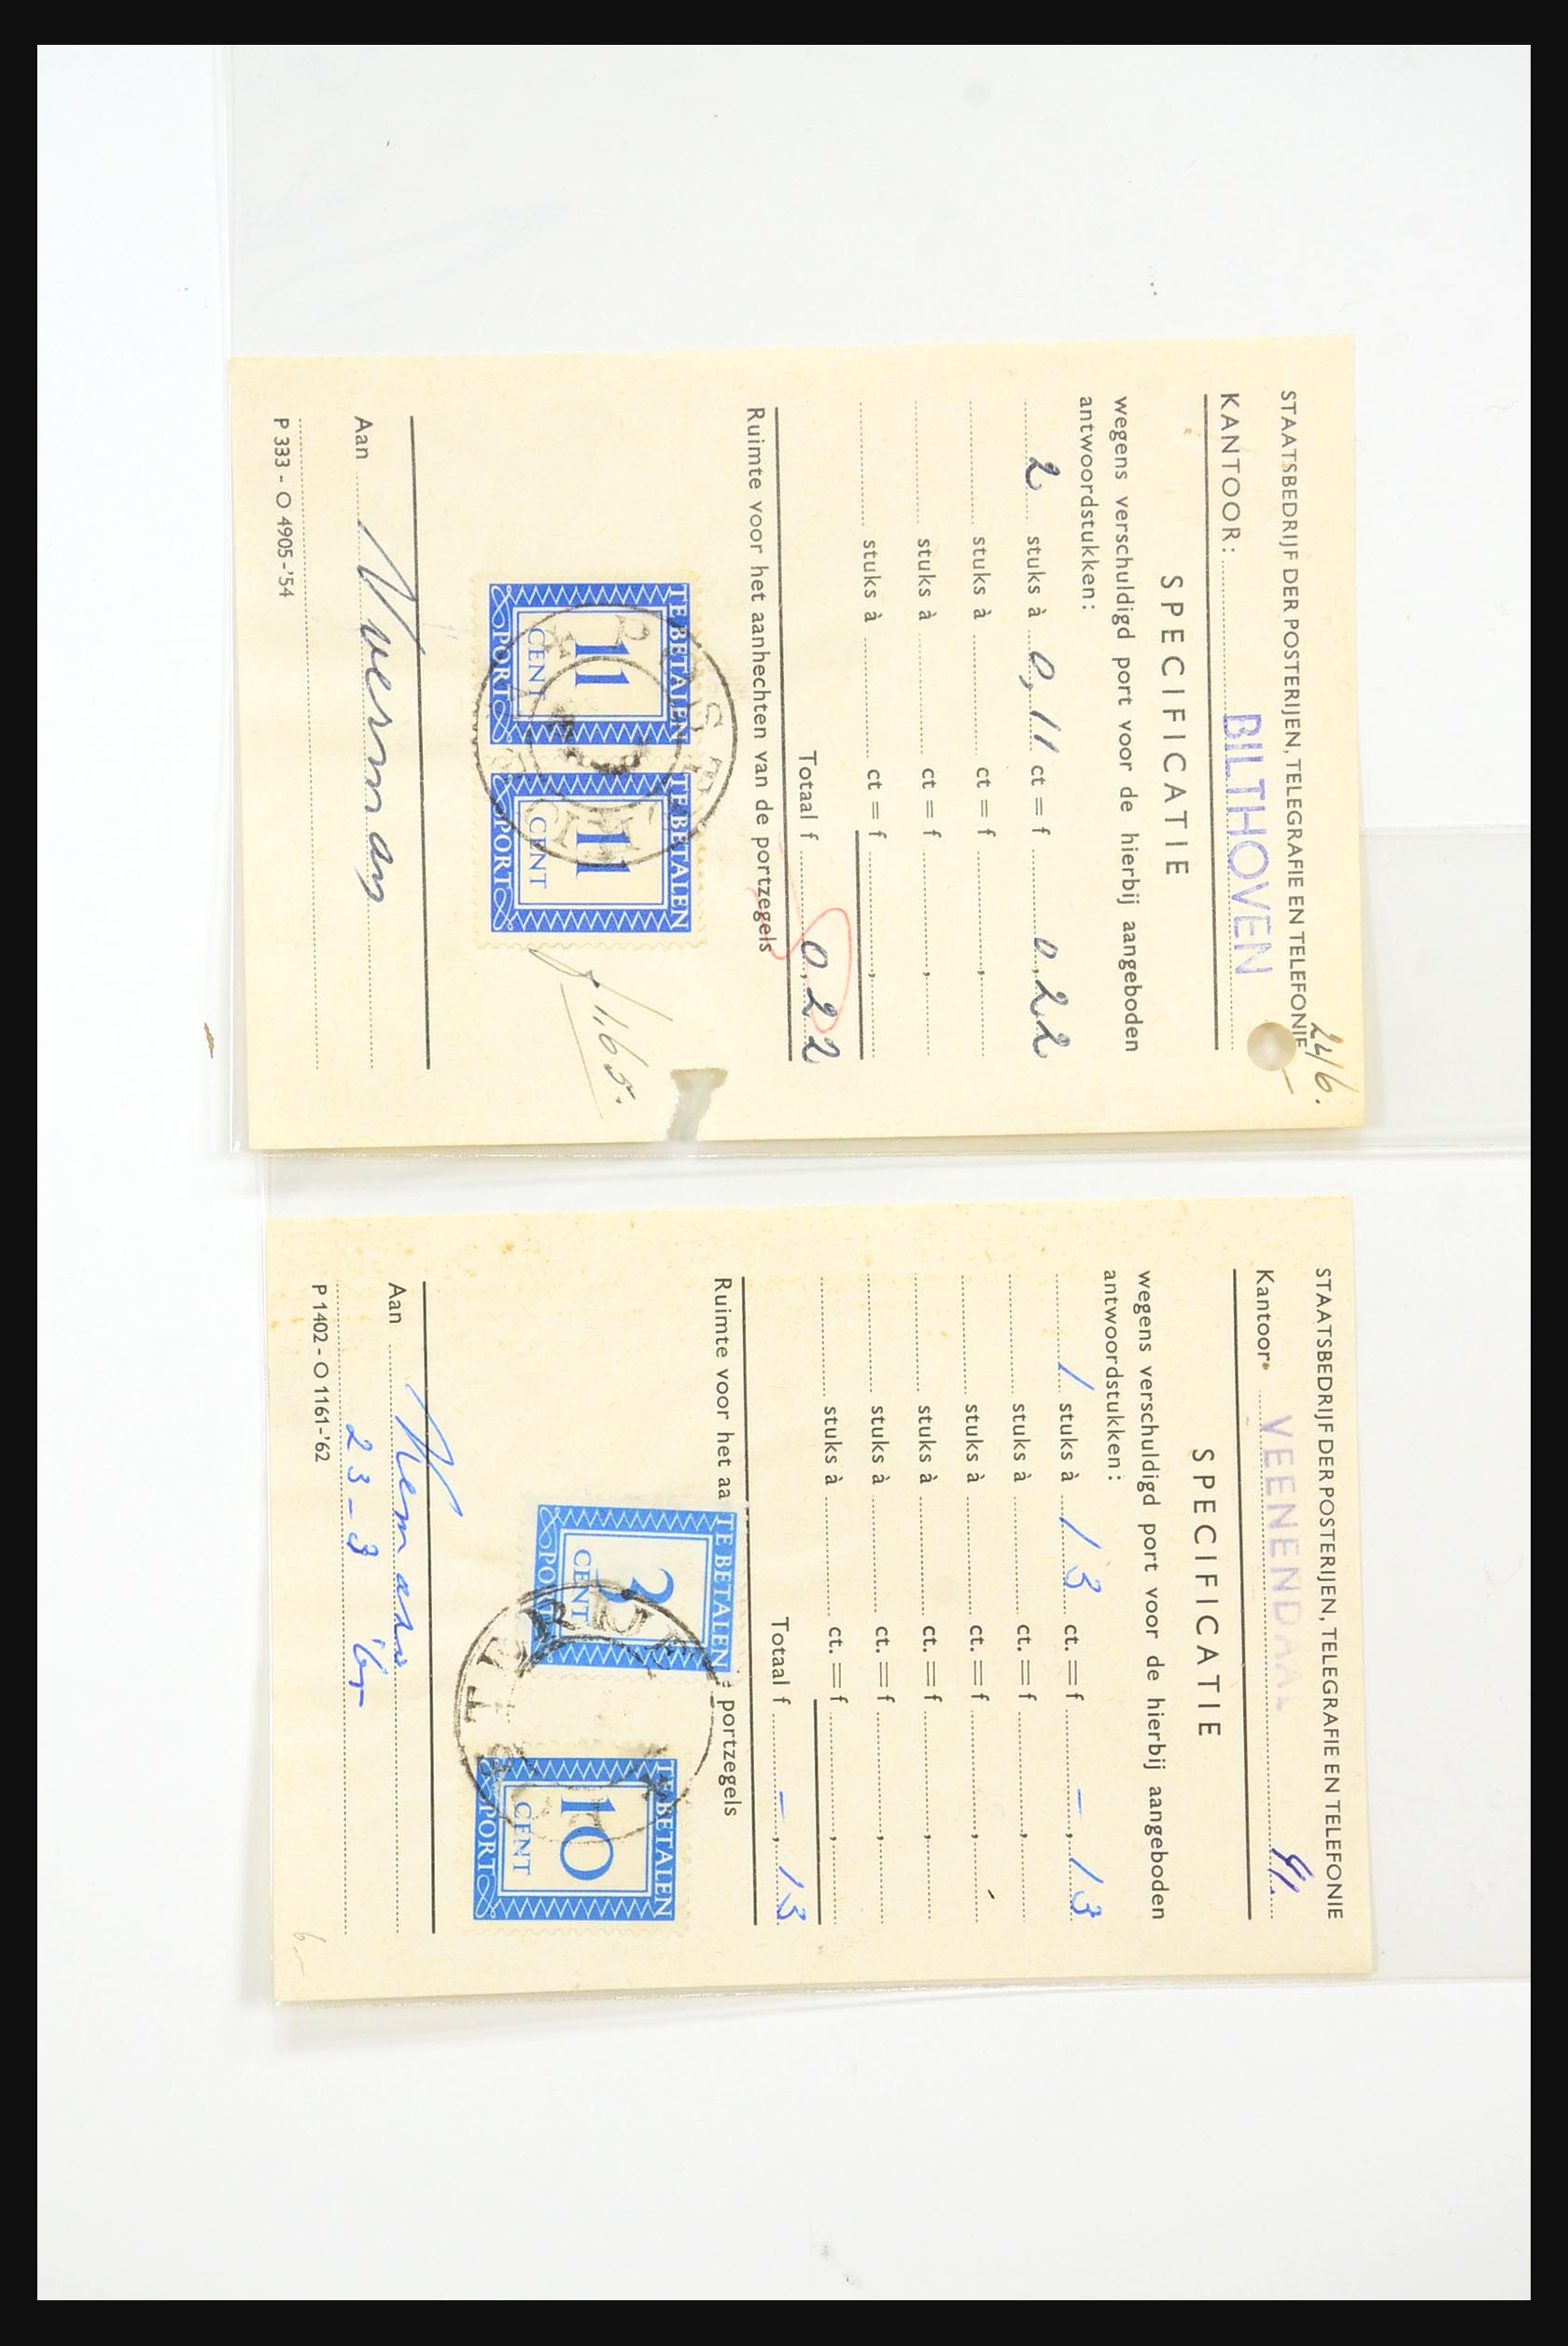 24/6.
STAATSBEDRIJF DER POSTERIJEN, TELEGRAFIE EN TELEFONIE
KANTOOR: BILTHOVEN
SPECIFICATIE
wegens verschuldigd port voor de hierbij aangeboden
antwoordstukken:
2 stuks à 0,11 ct = f 0,22
stuks à ct = f ,
stuks à ct = f ,
stuks à ct = f ,
Totaal f 0,22
Ruimte voor het aanhechten van de portzegels
TE BETALEN TE BETALEN
11 11
CENT CENT
PORT PORT
Aan
P 333 - O 4905-'54
STAATSBEDRIJF DER POSTERIJEN, TELEGRAFIE EN TELEFONIE
Kantoor VEENENDAAL
SPECIFICATIE
wegens verschuldigd port voor de hierbij aangeboden
antwoordstukken:
1 stuks à 13 ct. = f -,13
stuks à ct. = f ,
stuks à ct. = f ,
stuks à ct. = f ,
stuks à ct. = f ,
stuks à ct. = f ,
Totaal f -,13
Ruimte voor het aa portzegels
TE BETALEN TE BETALEN
3 10
CENT CENT
PORT PORT
Aan
23-3 '65
P 1402 - O 1161-'62